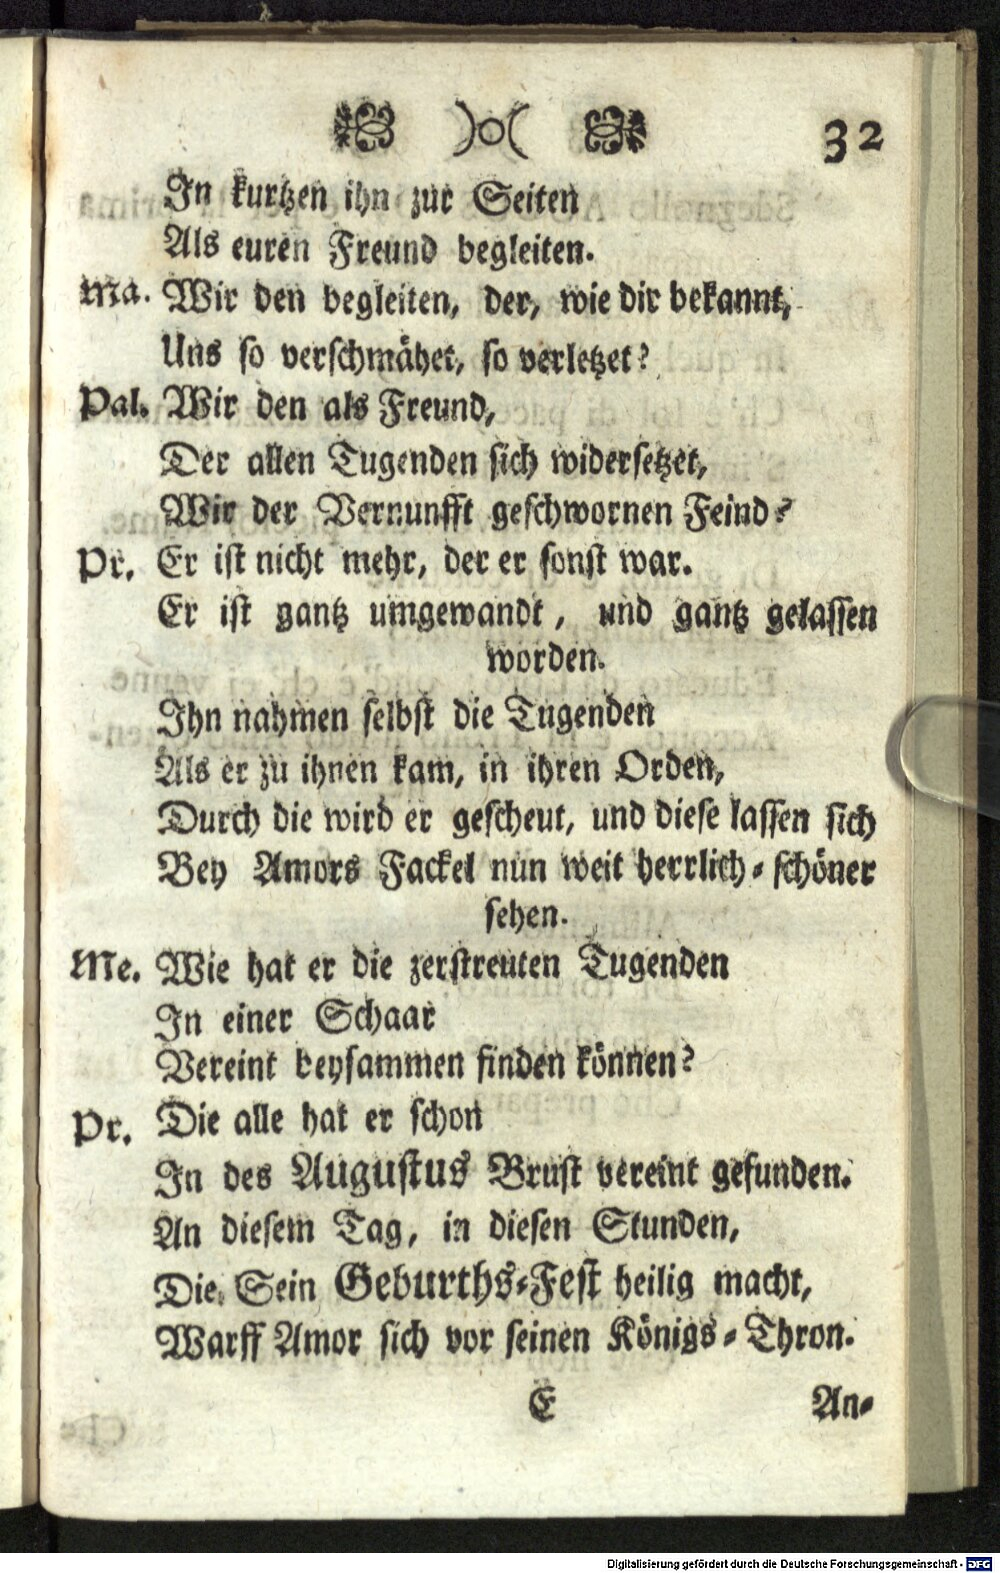 32
In kurtzen ihn zur Seiten
Als euren Freund begleiten.
Ma. Wir den begleiten, der, wie dir bekannt,
Uns so verschmähet, so verletzet?
Pal. Wir den als Freund,
Der allen Tugenden sich widersetzet,
Wir der Vernunfft geschwornen Feind?
Pr. Er ist nicht mehr, der er sonst war.
Er ist gantz umgewandt, und gantz gelassen
worden.
Ihn nahmen selbst die Tugenden
Als er zu ihnen kam, in ihren Orden,
Durch die wird er gescheut, und diese lassen sich
Bey Amors Fackel nun weit herrlich-schöner
sehen.
Me. Wie hat er die zerstreuten Tugenden
In einer Schaar
Vereint beysammen finden können?
Pr. Die alle hat er schon
In des Augustus Brust vereint gefunden.
An diesem Tag, in diesen Stunden,
Die Sein Geburths-Fest heilig macht,
Warff Amor sich vor seinen Königs-Thron.
E An-
Digitalisierung gefördert durch die Deutsche Forschungsgemeinschaft - DFG